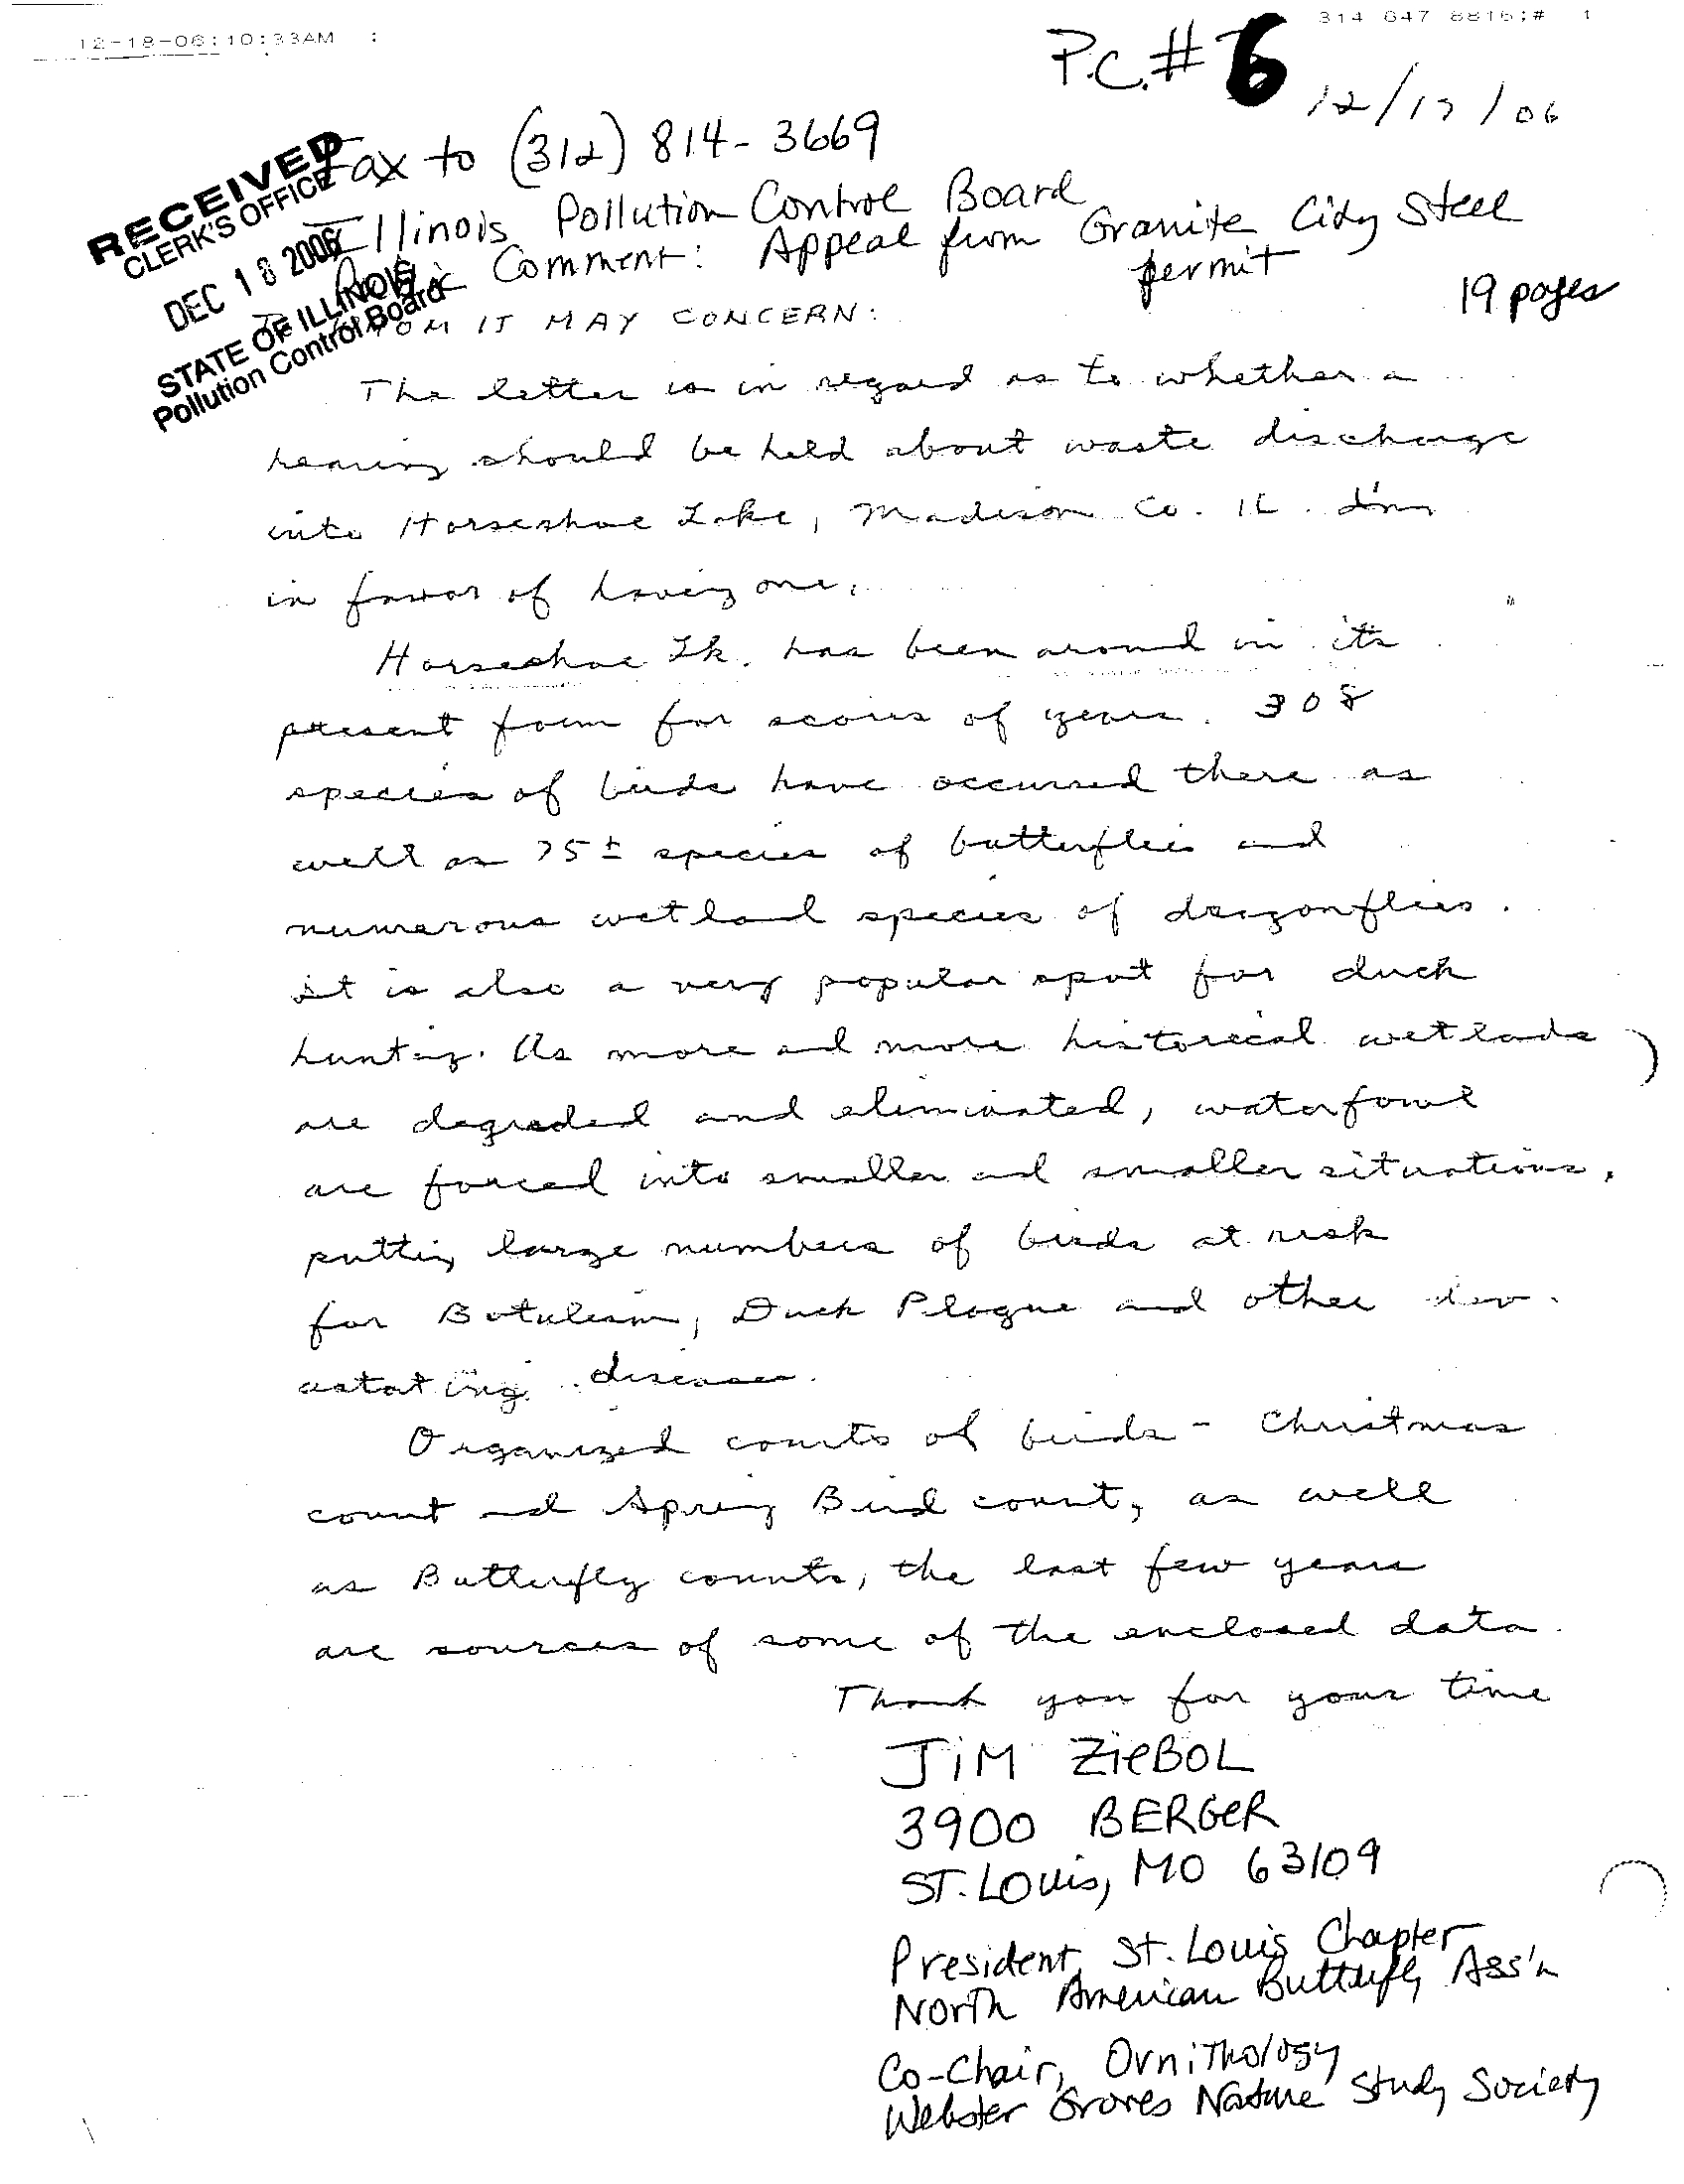 12-18-06;10:33AM ;
314 647 8816;# 1
P.C.# 6
12/17/06
RECEIVED
CLERK'S OFFICE
DEC 18 2006
STATE OF ILLINOIS
Pollution Control Board
Fax to (312) 814-3669
Illinois Pollution Control Board
Public Comment: Appeal from Granite City Steel
permit
19 pages
To WHOM IT MAY CONCERN:
The letter is in regard as to whether a
hearing should be held about waste discharge
into Horseshoe Lake, Madison Co. IL. I'm
in favor of having one.
Horseshoe Lk. has been around in its
present form for scores of years. 308
species of birds have occurred there as
well as 75± species of butterflies and
numerous wetland species of dragonflies.
it is also a very popular spot for duck
hunting. As more and more historical wetlands
are degraded and eliminated, waterfowl
are forced into smaller and smaller situations,
putting large numbers of birds at risk
for Botulism, Duck Plague and other dev-
astating diseases.
Organized counts of birds - Christmas
count and Spring Bird count, as well
as Butterfly counts, the last few years
are sources of some of the enclosed data.
Thank you for your time
JIM ZIEBOL
3900 BERGER
ST. LOUIS, MO 63109
President, St. Louis Chapter
North American Butterfly Ass'n
Co-Chair, Ornithology
Webster Groves Nature Study Society